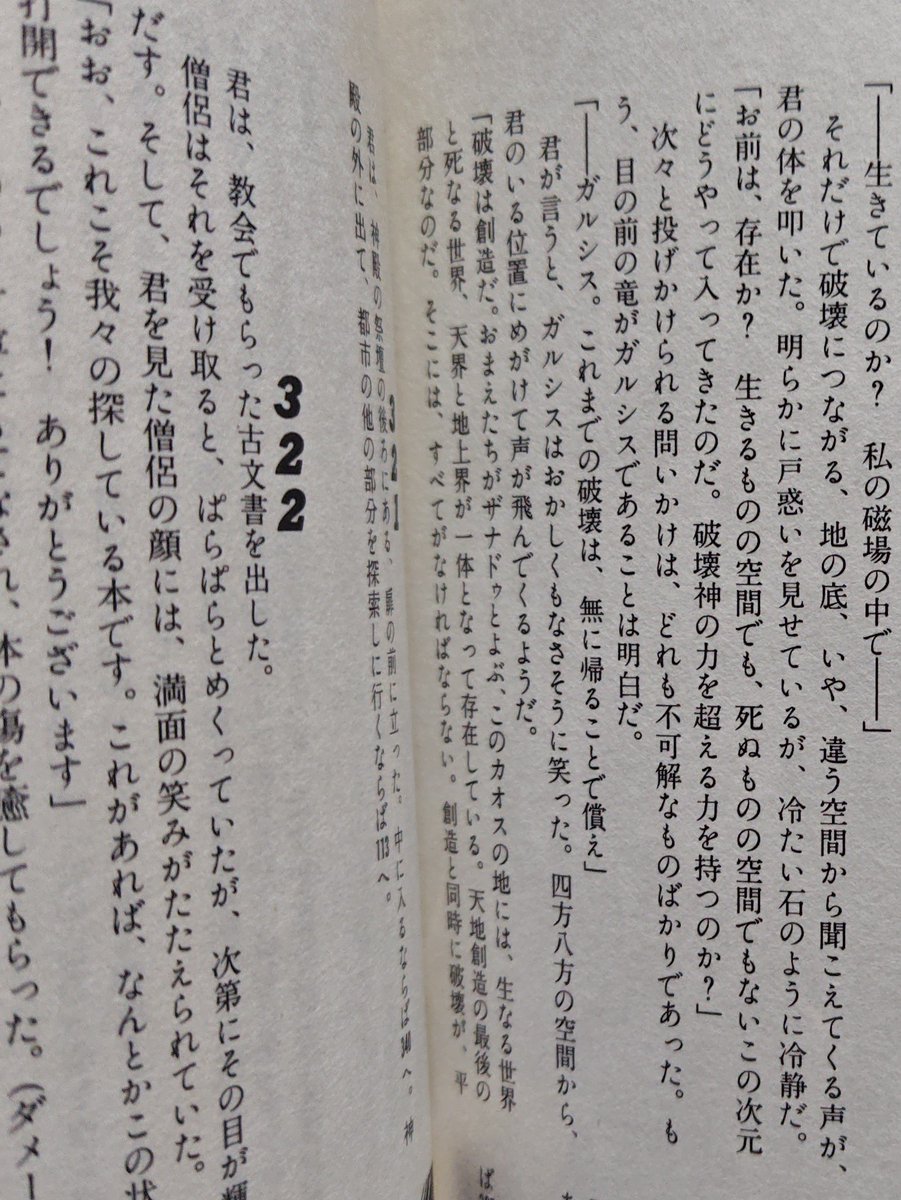 「――生きているのか？　私の磁場の中で――」
　それだけで破壊につながる、地の底、いや、違う空間から聞こえてくる声が、
君の体を叩いた。明らかに戸惑いを見せているが、冷たい石のように冷静だ。
「お前は、存在か？　生きるものの空間でも、死ぬものの空間でもないこの次元
にどうやって入ってきたのだ。破壊神の力を超える力を持つのか？」
　次々と投げかけられる問いかけは、どれも不可解なものばかりであった。も
う、目の前の竜がガルシスであることは明白だ。
「――ガルシス。これまでの破壊は、無に帰ることで償え」
　君が言うと、ガルシスはおかしくもなさそうに笑った。四方八方の空間から、
君のいる位置にめがけて声が飛んでくるようだ。
「破壊は創造だ。おまえたちがザナドゥとよぶ、このカオスの地には、生なる世界
と死なる世界、天界と地上界が一体となって存在している。天地創造の最後の
部分なのだ。そこには、すべてがなければならない。創造と同時に破壊が、平
321
　君は、神殿の祭壇の後ろにある、扉の前に立った。中に入るならば340へ。神
殿の外に出て、都市の他の部分を探索しに行くならば113へ。
322
　君は、教会でもらった古文書を出した。
僧侶はそれを受け取ると、ぱらぱらとめくっていたが、次第にその目が輝
だす。そして、君を見た僧侶の顔には、満面の笑みがたたえられていた。
「おお、これこそ我々の探している本です。これがあれば、なんとかこの状
打開できるでしょう！　ありがとうございます」
され、本の傷を癒してもらった。（ダメー